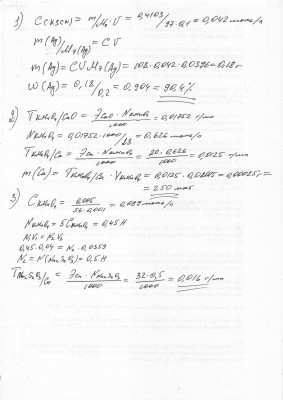 1) C(KSCN) = m/M·V = 0,4103/97·0,1 = 0,042 моль/л
m(Ag)/M(Ag) = CV
m(Ag) = CVM(Ag) = 108·0,042·0,0396 = 0,18 г
W(Ag) = 0,18/0,2 = 0,904 = 90,4%
2) T KMnO4/CaO = Эcao · N KMnO4/1000 = 0,01752 г/мл
N KMnO4 = 0,01752·1000/28 = 0,626 моль/л
T KMnO4/Ca = Эca · N KMnO4/1000 = 20·0,626/1000 = 0,0125 г/мл
m(Ca) = T KMnO4/Ca · V KMnO4 = 0,0125·
= 250 
3) C KMnO4 = 0,005/56·0,001 = 0,089 моль/л
N KMnO4 = 5C KMnO4 = 0,45 Н
N1V1 = N2V2
0,45·0,04 = N2·0,0359
N2 = N(Na2S2O3) = 0,5 Н
T Na2S2O3/Cu = Эcu · N Na2S2O3/1000 = 32·0,5/1000 = 0,016 г/мл